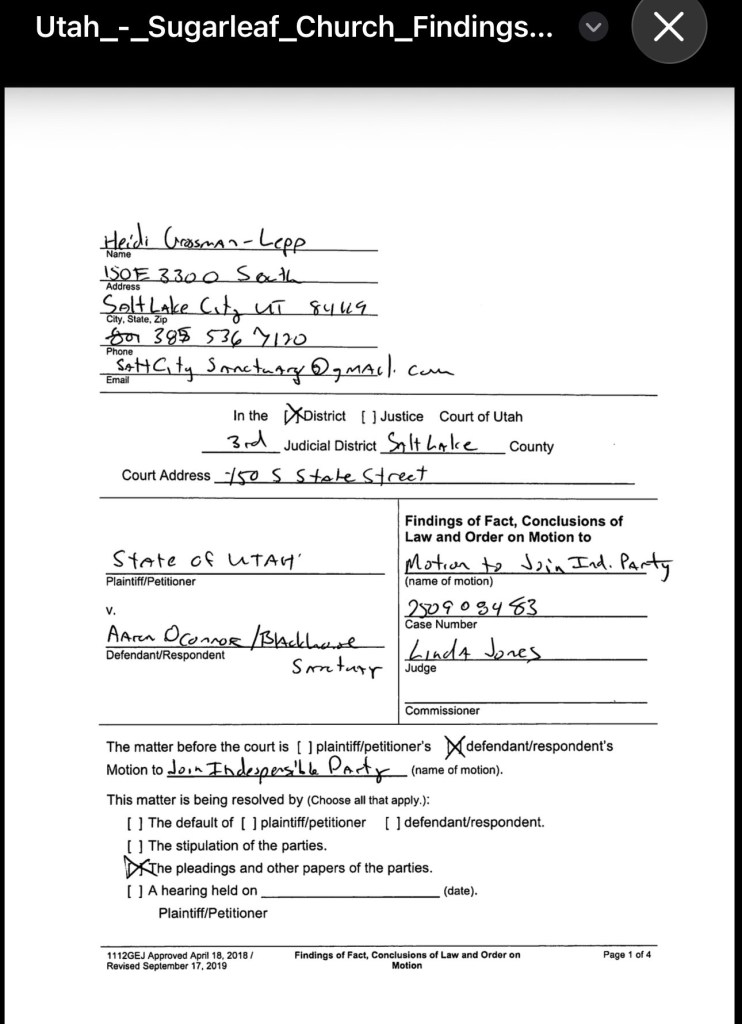 Utah_-_Sugarleaf_Church_Findings...
Heidi Grossman-Lepp
Name
150E 3300 South
Address
Salt Lake City UT
City, State, Zip
385 536 7120
Phone
SaltCity Sanctuary @gmail.com
Email
In the [X] District [ ] Justice Court of Utah
3rd Judicial District Salt Lake County
Court Address 450 S State Street
Findings of Fact, Conclusions of
Law and Order on Motion to
State of UTAH
Motion to Join Ind. Party
Plaintiff/Petitioner
(name of motion)
v.
250903483
Case Number
Aaron OConnor /Blackhouse
Sanctuary
Defendant/Respondent
Linda Jones
Judge
Commissioner
The matter before the court is [ ] plaintiff/petitioner's [X] defendant/respondent's
Motion to Join Indespensible Party (name of motion).
This matter is being resolved by (Choose all that apply.):
[ ] The default of [ ] plaintiff/petitioner [ ] defendant/respondent.
[ ] The stipulation of the parties.
[X] The pleadings and other papers of the parties.
[ ] A hearing held on (date).
Plaintiff/Petitioner
1112GEJ Approved April 18, 2018 /
Revised September 17, 2019
Findings of Fact, Conclusions of Law and Order on
Motion
Page 1 of 4